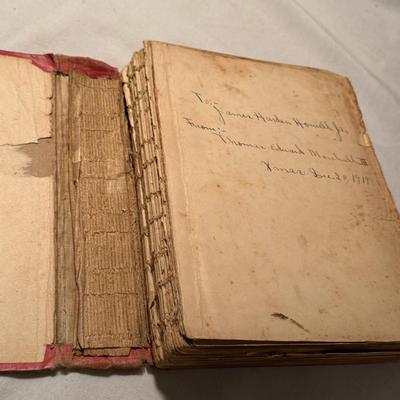 To:- James Harden Howell Jr,
From:- Thomas Edward Marshall III
Xmas Dec 1917